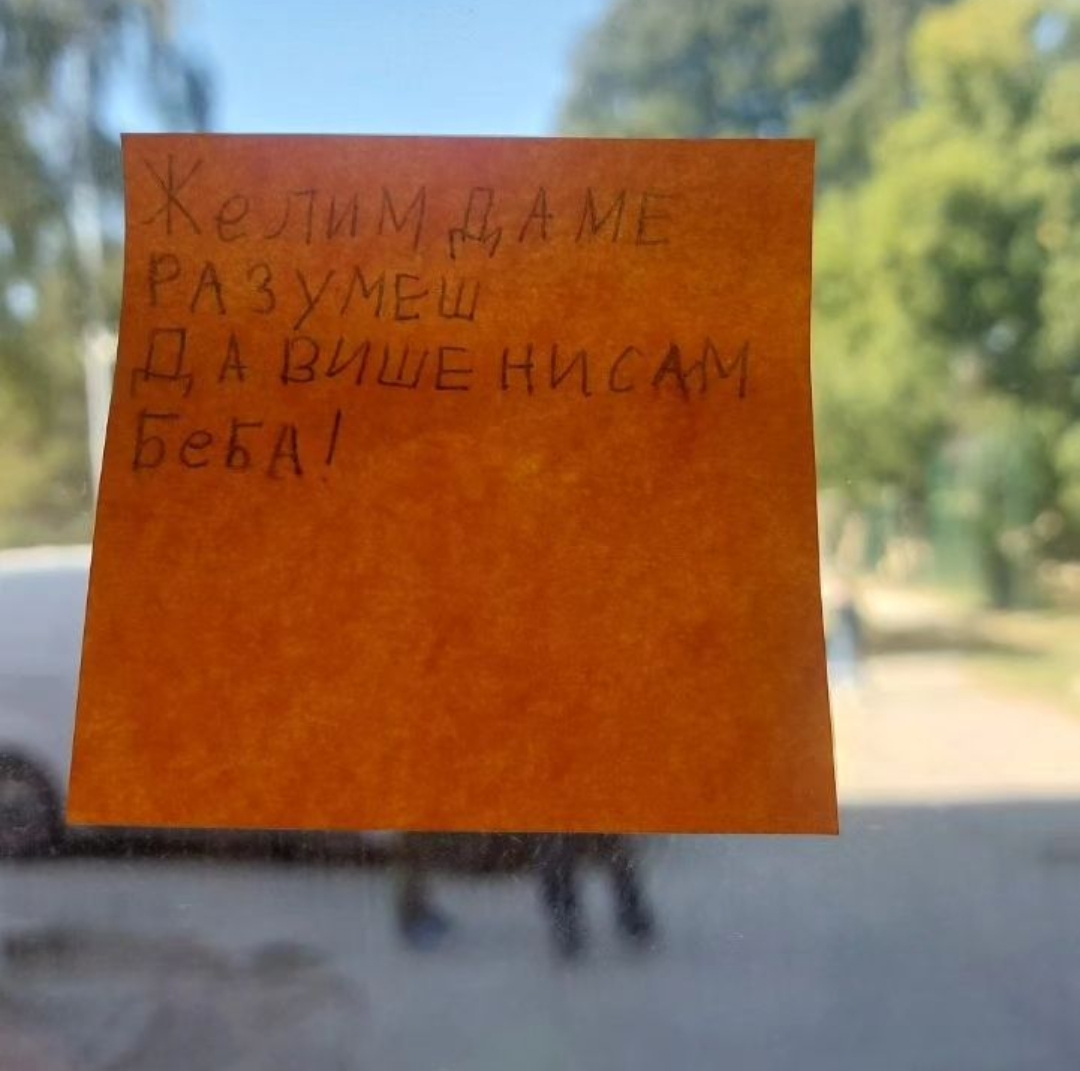 Желим ДАМЕ
РАЗУМЕШ
ДА ВИШЕ НИСАМ
БеБА!